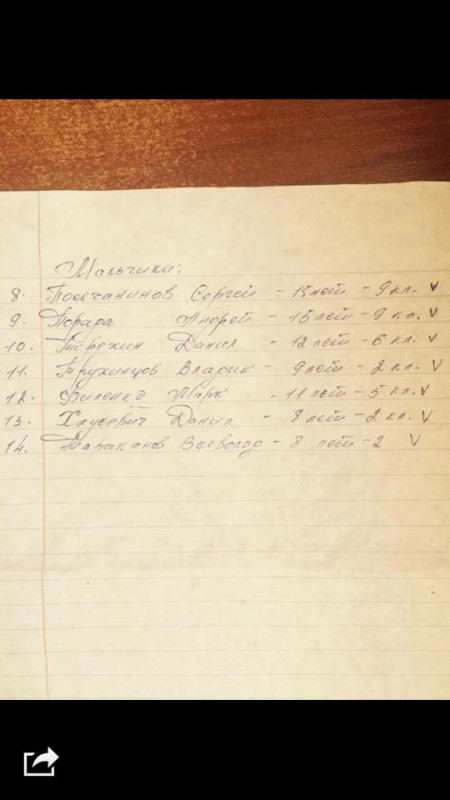 Мальчики:
8. Полчанинов Сергей - 15 лет - 9 кл. V
9. Порада Андрей - 15 лет - 9 кл. V
10. Терехин Данил - 12 лет - 6 кл. V
11. Трухинцов Владик - 9 лет - 2 кл. V
12. Филенко Марк - 11 лет - 5 кл. V
13. Данил - 8 лет - 2 кл. V
14. Тараканов Всеволод - 8 лет - 2 V